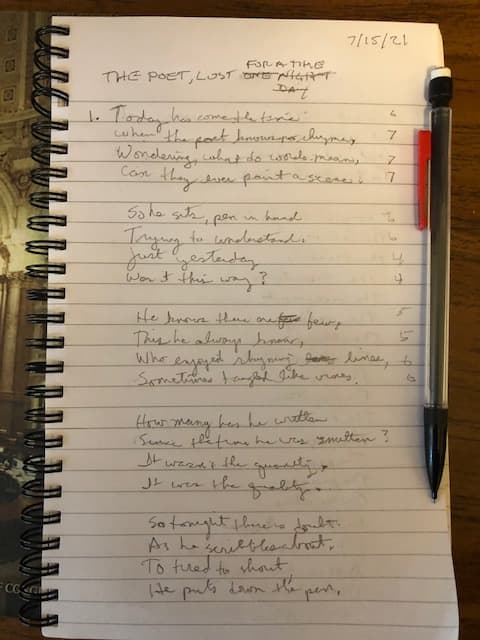 7/15/21
FOR A TIME
THE POET, LOST ONE NIGHT
DAY
1. Today has come the time 6
When the poet knows no rhyme, 7
Wondering, what do words mean, 7
Can they ever paint a scene. 7
So he sits, pen in hand 6
Trying to understand. 6
Just yesterday 4
Wasn't this way? 4
He knows there are few few, 5
This he always knew, 5
Who enjoyed rhyming lines, 6
Sometimes tangled like vines. 6
How many has he written
Since the time he was smitten?
It wasn't the quantity,
It was the quality.
So tonight there is doubt.
As he scribbles about,
To tired to shout
He puts down the pen,